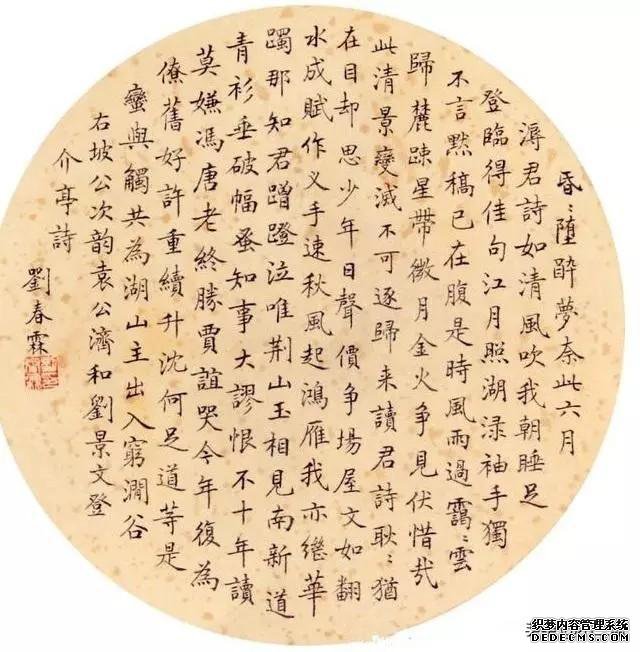 昏〻墮醉夢奈此六月
溽君詩如清風吹我朝睡足
登臨得佳句江月照湖渌袖手獨
不言默稿已在腹是時風雨過靄〻雲
歸麓踈星帶微月金火争見伏惜哉
此清景變滅不可逐歸来讀君詩耿〻猶
在目却思少年日聲價争場屋文如翻
水成賦作义手速秋風起鴻雁我亦繼華
躅那知君蹭蹬泣唯荆山玉相見南新道
青衫垂破幅蚤知事大謬恨不十年讀
莫嫌馮唐老終勝賈誼哭今年復為
僚舊好許重續升沈何足道等是
蠻與觸共為湖山主出入窮澗谷
右坡公次韵袁公濟和劉景文登
介亭詩
劉春霖
织梦内容管理系统
DEDECMS.COM